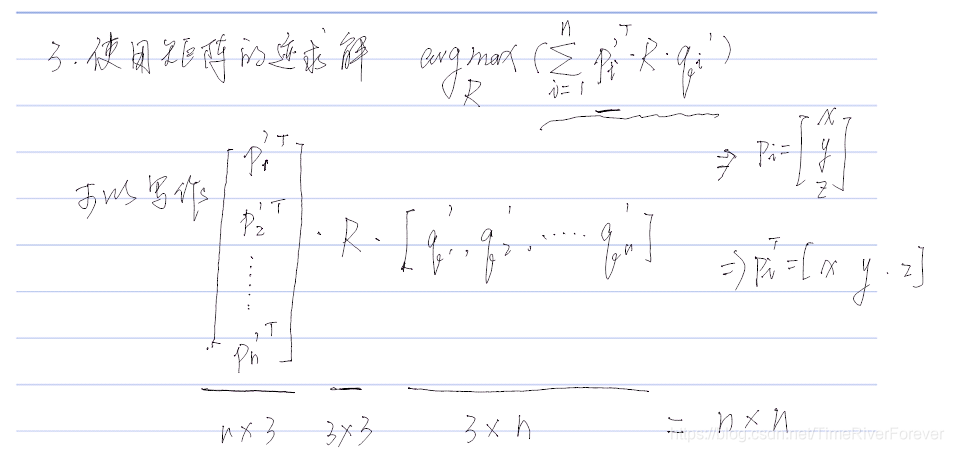 3. 使用矩阵的迹求解 arg max_R (∑_{i=1}^{n} p_i'^T · R · q_i')
⇒ p_i = [x y z]
可以写作 [p_1'^T p_2'^T ⋮ p_n'^T] · R · [q_1', q_2', ...... q_n']
⇒ p_i^T = [x y . z]
n×3 3×3 3×n = n×n
https://blog.csdn.net/TimeRiverForever